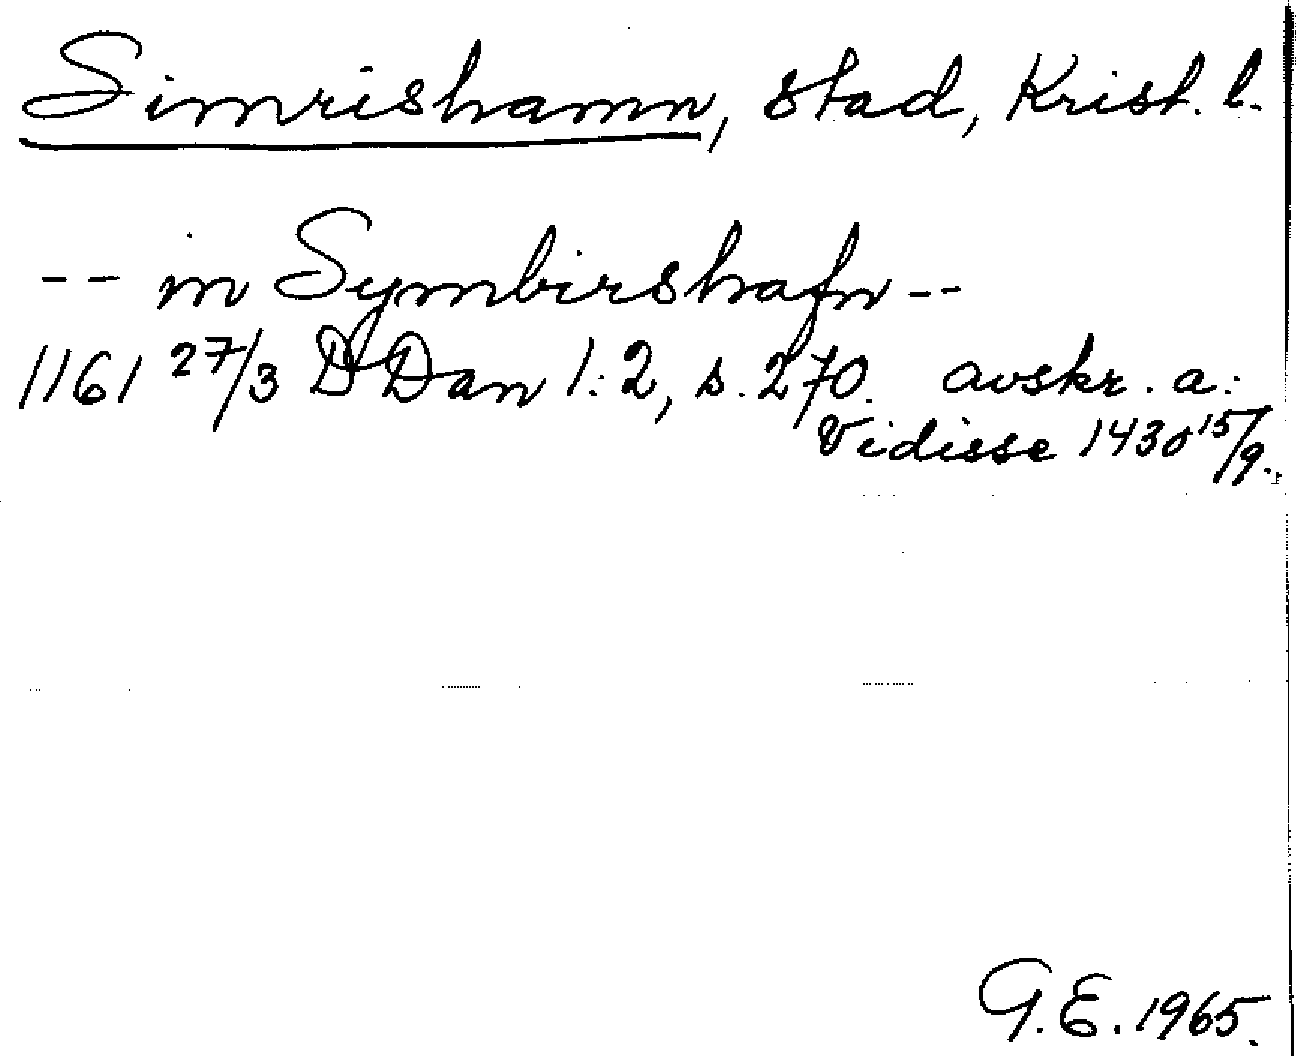 Simrishamn, stad, Krist. l.
-- in Symbirshafn --
1161 27/3 DDan 1:2, s. 270. avskr. a:
Vidisse 1430 15/9.
G.E. 1965.